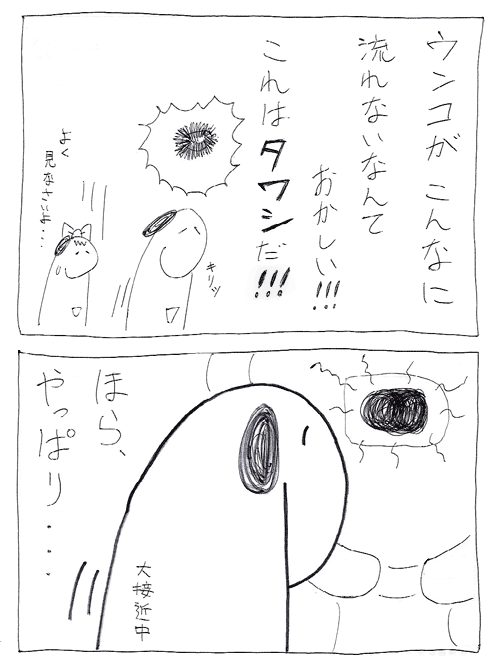 ウンコが こんなに
流れないなんて
おかしい!!!
これは タワシだ!!!
キリッ
よく
見なさいよ・・・
ほら、
やっぱり・・・・
大接近中